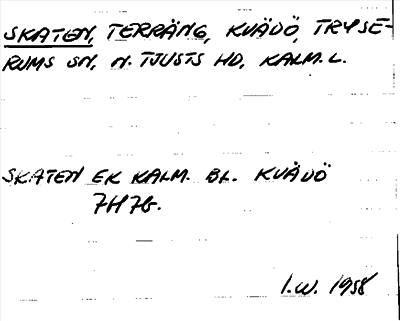 SKATEN, TERRÄNG, KVÄDÖ, TRYSE-
RUMS SN, N. TJUSTS HD, KALM. L.
SKATEN EK KALM. BL. KVÄDÖ
7H7G.
I.W. 1958